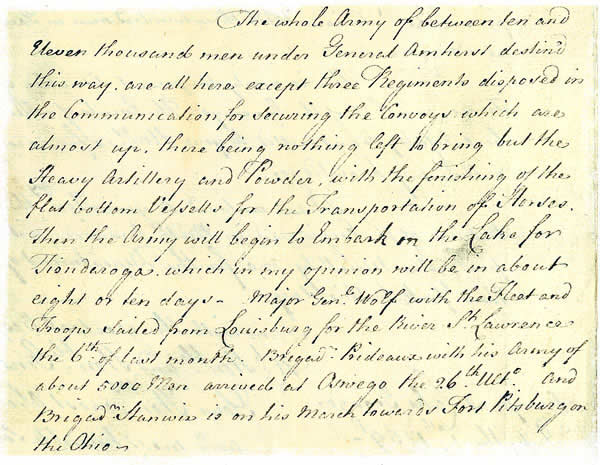 The whole Army of between ten and
Eleven thousand men under General Amherst destin'd
this way. are all here except three Regiments disposed in
the Communication for securing the Convoys which are
almost up. there being nothing left to bring but the
Heavy Artillery and Powder, with the finishing of the
flat bottom Vessells for the Transportation off Horses.
Then the Army will begin to Embark on the Lake for
Tionderoga. which in my opinion will be in about
eight or ten days - Major Gen.l Wolf with the Fleet and
Troops sailed from Louisburg for the River St. Lawrence
the 6th of last month. Brigad.r Prideaux with his Army of
about 5000 Men arrived at Oswego the 26th Ult.o And
Brigad.r Stanwix is on his March towards Fort Pitsburg on
the Ohio -